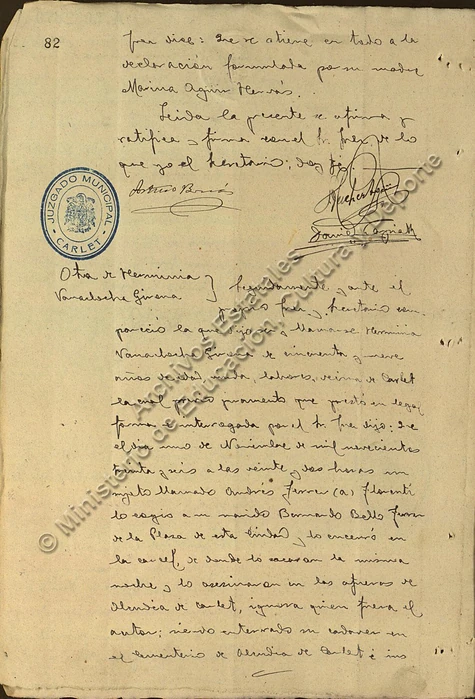 82
fran dice: Que se atiene en todo a la
declaración formulada por su madre
Marina Aguir Hervás.
Leida la presente se afirma y
ratifica y firma con el Sr. Juez de lo
que yo el Secretario, doy fe.
JUZGADO MUNICIPAL
- CARLET -
Otra de Herminia
Vanaclocha Girona
Seguidamente y ante el
propio Juez y Secretario com
pareció la que dice ser y llamarse Herminia
Vanaclocha Girona de cincuenta y nueve
años de edad, viuda, labores, vecina de Carlet
la cual previo juramento que prestó en legal
forma e interrogada por el Sr. Juez dijo: Que
el dia uno de Noviembre de mil novecientos
treinta y seis a las veinte y dos horas un
sujeto llamado Andrés Ferrer (a) Florentí
lo cogio a su marido Bernardo Bello Ferrer
de la Plaza de esta Ciudad y lo encerró en
la carcel, de donde lo sacaron la misma
noche y lo asesinaron en las afueras de
Alcudia de Carlet, ignora quien fuera el
autor; siendo enterrado su cadaver en
el Cementerio de Alcudia de Carlet é ins
© Ministerio de Educación, Cultura y Deporte
Archivos Estatales